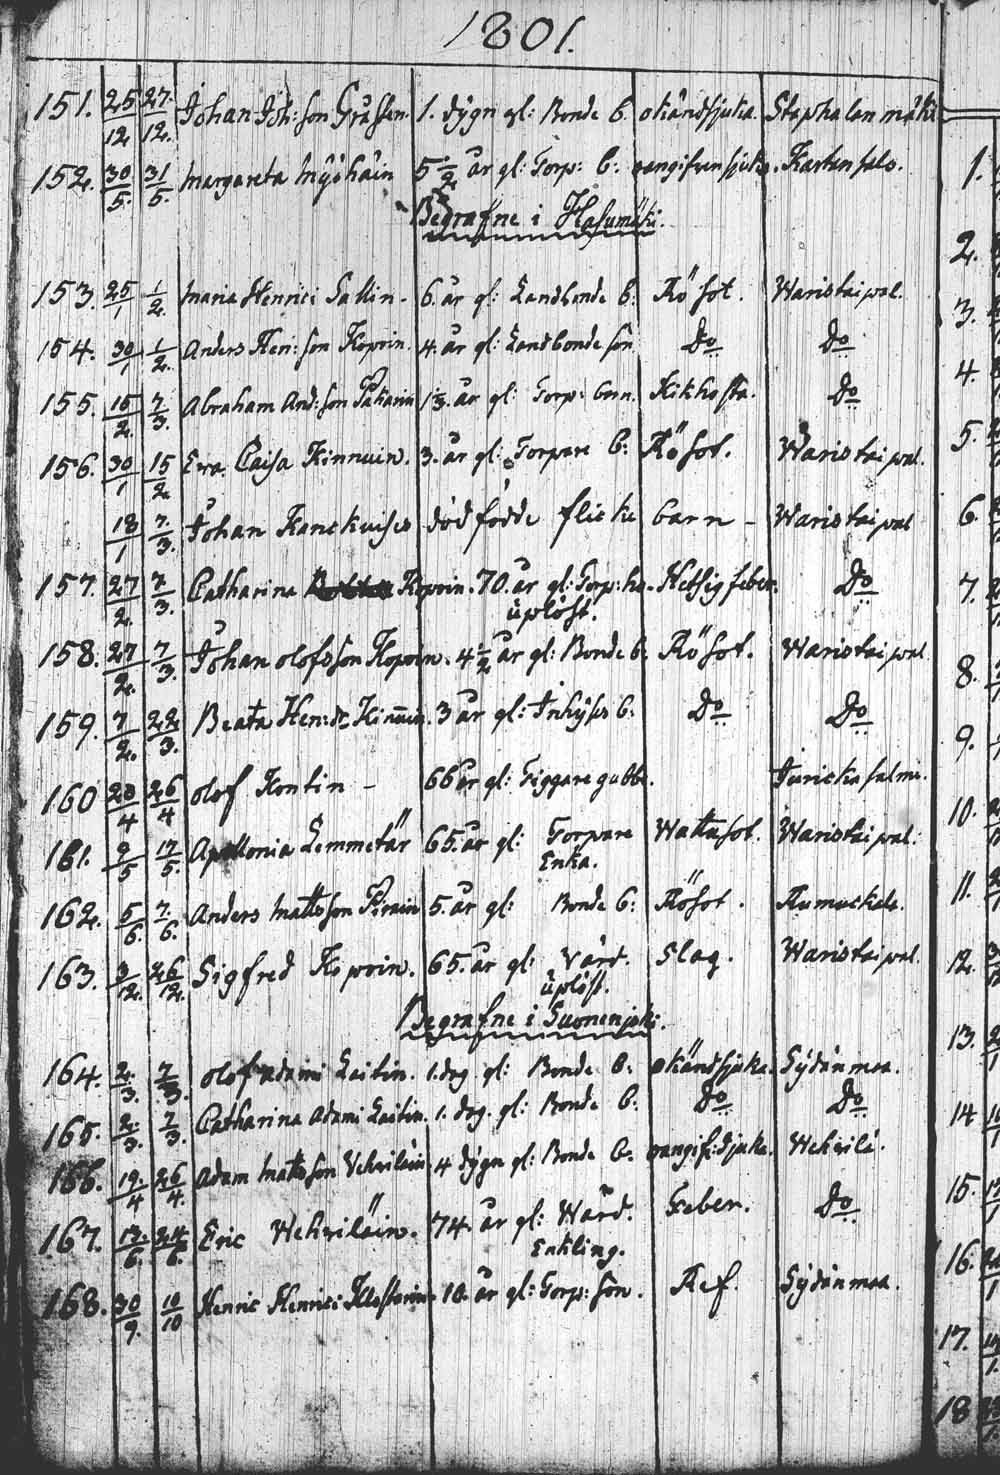 1801.
151. 25/12 27/12. Johan Joh: son Gråsten. 1. dygn gl: Bonde b. okänd sjuka. Staphalan mäki
152. 30/5. 31/5. Margareta Myöhäin 5 1/2 år gl: Torp: b: Kartan salo.
Begrafne i Hasumäki.
153. 25/1 1/2. Maria Henrici Sallin - 6. år gl: Landbonde b: Rö sot. Waristaipal.
154. 30/1 1/2. Anders Hen: son Kopoin. 4. år gl: Landbonde son Do Do
155. 16/2. 7/3. Abraham And: son 1 1/3. år gl: Torp: barn. Kikhosta. Do
156. 30/1 15/2. Eva Caisa Kinnuin. 3. år gl: Torpare b: Rö sot. Waristaipal.
18/1 7/3. Johan dödfödde flicke barn - Waristaipal
157. 27/2. 7/3. Catharina Kopoin. 70. år gl: Torp: Hetsig feber. Do
158. 27/2. 7/3. Johan Olofsson Kopoin. 4 1/2 år gl: Bonde b. Rö sot. Waristaipal
159. 7/2. 22/3. Beata Hen: dr Kinnuin. 3 år gl: Inhyses b: Do Do
160 23/4 26/4 Olof Kontin - 66 år gl: Tiggare gubbe. Juricka salmi.
161. 9/5 17/5. Apollonia Lemmetär 65. år gl: Torpare Enka. Wattusot. Waristaipal.
162. 5/6. 7/6. Anders Mattsson Pirain 5. år gl: Bonde b: Rösot. Rumuckala.
163. 3/12. 26/12. Sigfred Kopoin. 65. år gl: Slag. Waristaipal.
Begrafne i Suonenjoki.
164. 2/3. 7/3. Olof Adami Laitin. 1. dag gl: Bonde b: okänd sjuka. Sydänmaa.
165. 2/3. 7/3. Catharina Adami Laitin. 1. dag. gl: Bonde b. Do Do
166. 19/4 26/4. Adam Mattsson Vehviläin 4 dygn gl: Bonde b: Wehvilä.
167. 13/6. 24/6. Eric Wehviläin. 74. år gl: Wärd. Enkling. Feber. Do
168. 30/9. 10/10 Henric Henrici 10. år gl: Torp: son. Ref. Sydänmaa.
1.
2.
3.
4.
5.
6.
7.
8.
9.
10.
11.
12.
13.
14
15.
16.
17.
18